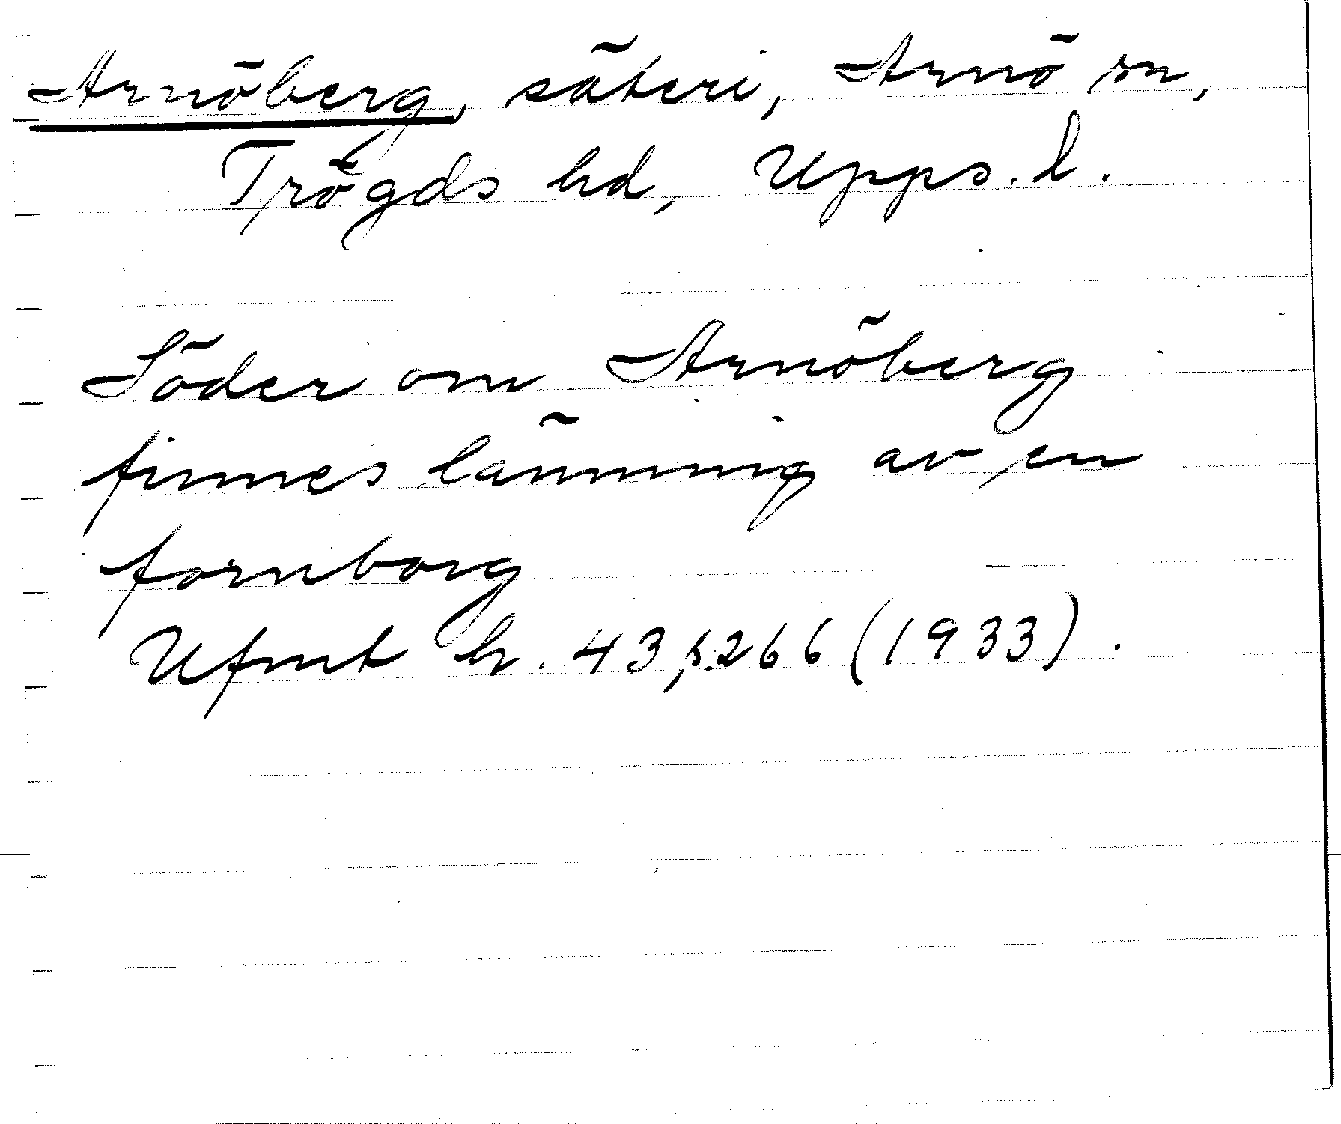 Arnöberg, säteri, Arnö sn,
Trögds hd, Upps. l.
Söder om Arnöberg
finnes lämning av en
fornborg
Ufmt h. 43, s. 266 (1933).